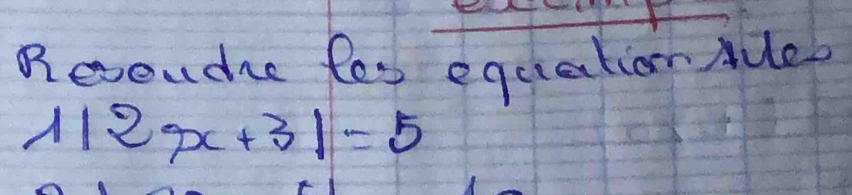 Resoudre les equation sules
1|2x+3|=5